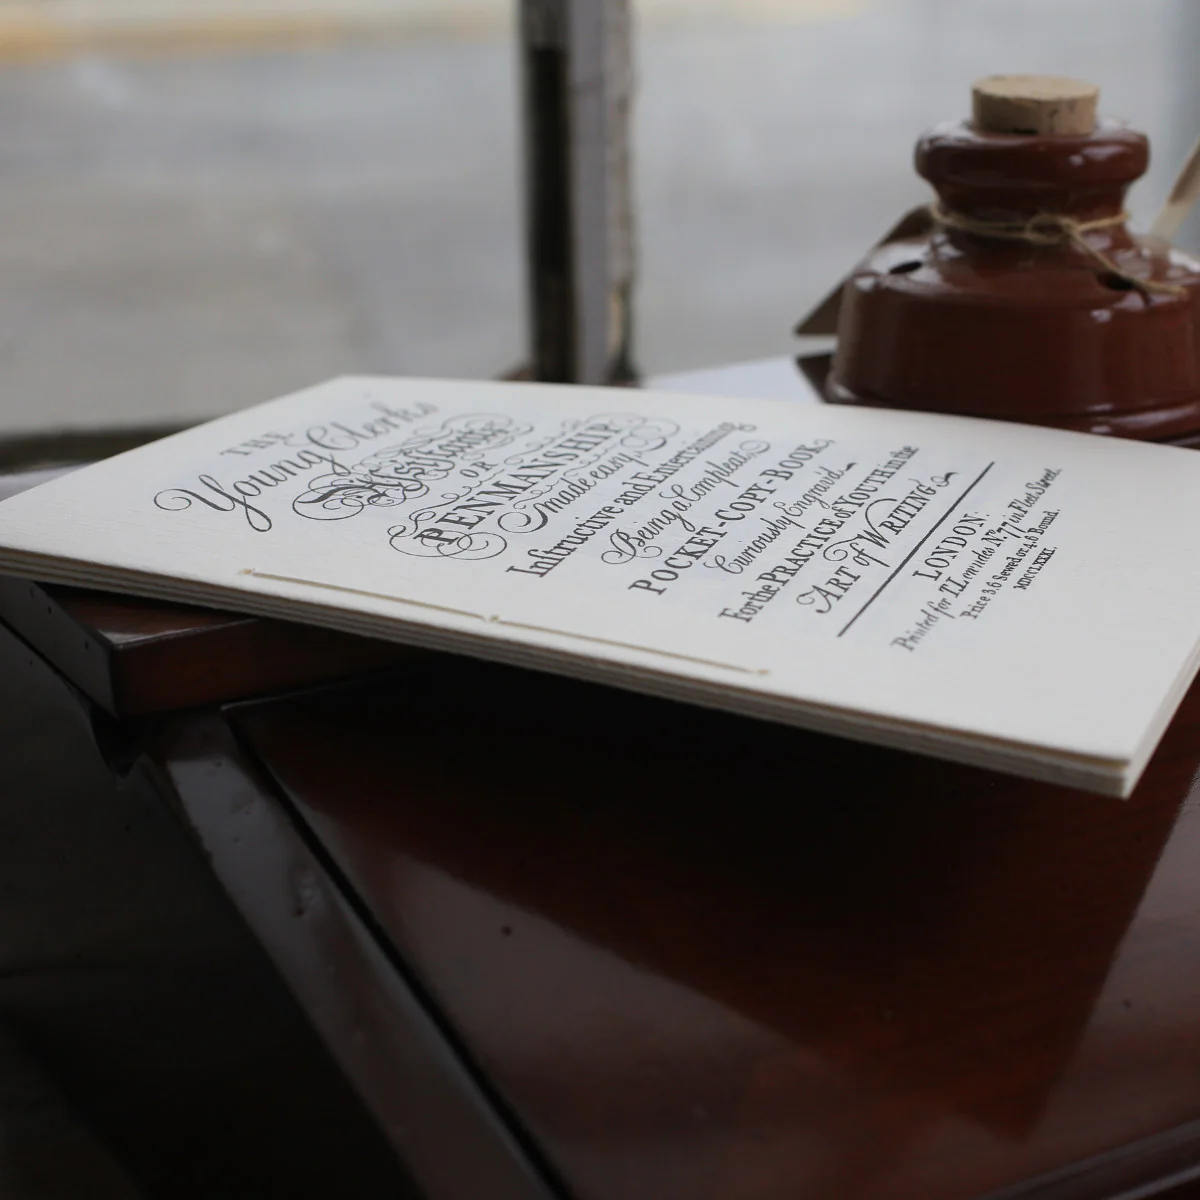 THE
Young Clerks
Assistant
OR
PENMANSHIP
made easy,
Inſtructive and Entertaining
Being a Compleat
POCKET-COPY-BOOK,
Curiously Engrav'd
For the PRACTICE of YOUTH in the
ART of WRITING.
LONDON:
Printed for Lowndes No. 77 in Fleet Street.
Price 3.6 Sewed or 4.6 Bound.
MDCCLXXXI.